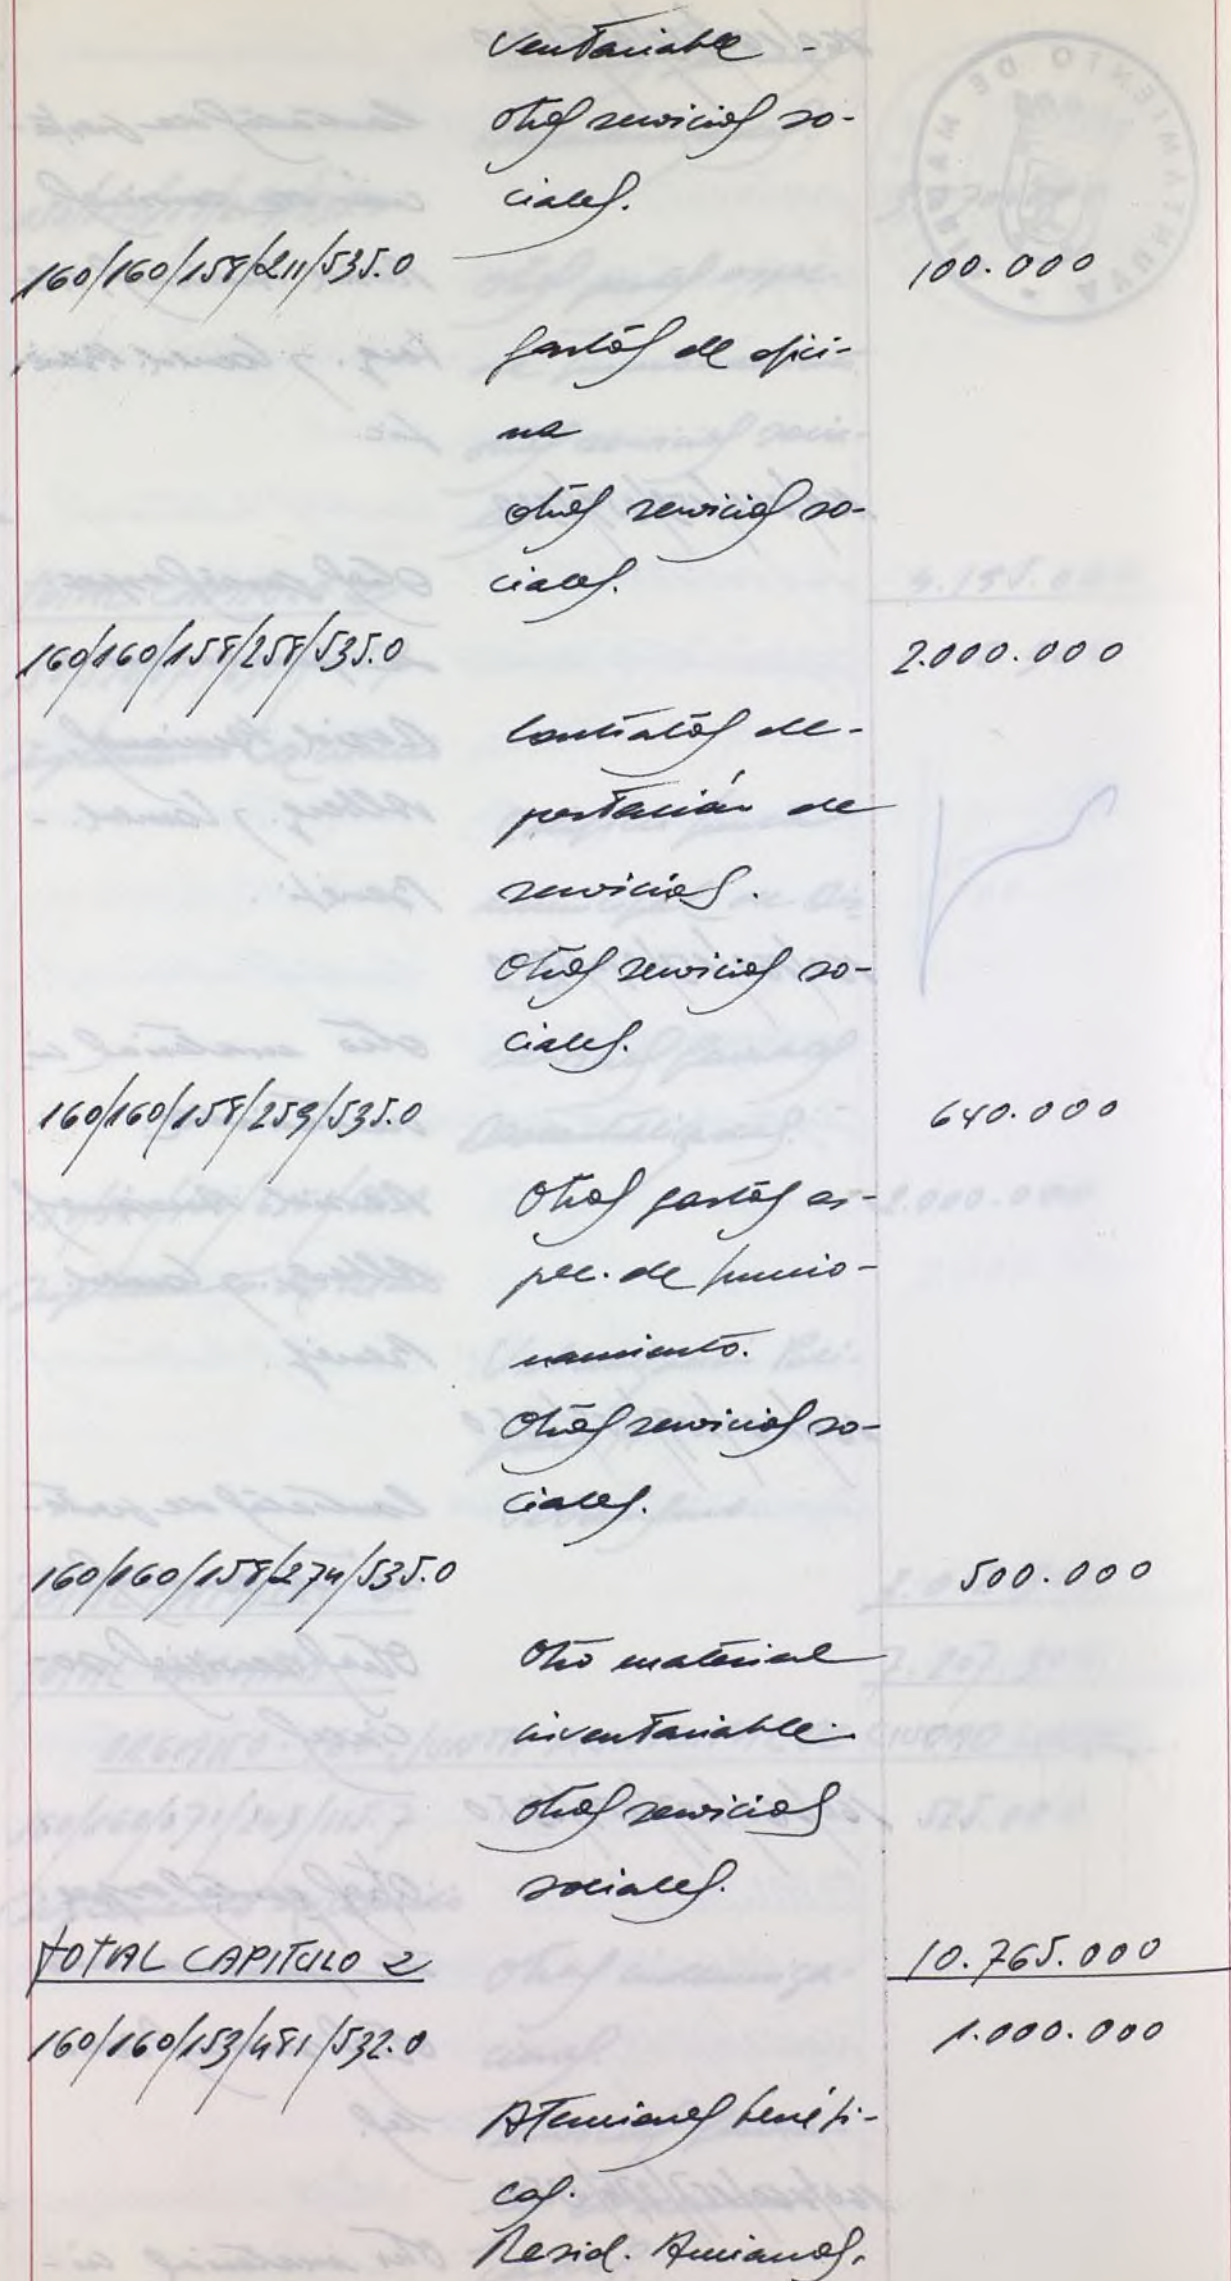 ventariable -
otros servicios so-
ciales.
160/160/158/211/535.0 100.000
gastos de ofici-
na
otros servicios so-
ciales.
160/160/158/258/535.0 2.000.000
Contratos de-
prestación de
servicios.
Otros servicios so-
ciales.
160/160/158/259/535.0 640.000
Otros gastos es-
pec. de funcio-
namiento.
Otros servicios so-
ciales.
160/160/158/274/535.0 500.000
Otro material
inventariable.
otros servicios
sociales.
TOTAL CAPITULO 2 10.765.000
160/160/153/481/532.0 1.000.000
Atenciones benéfi-
cas.
Resid. Ancianos.